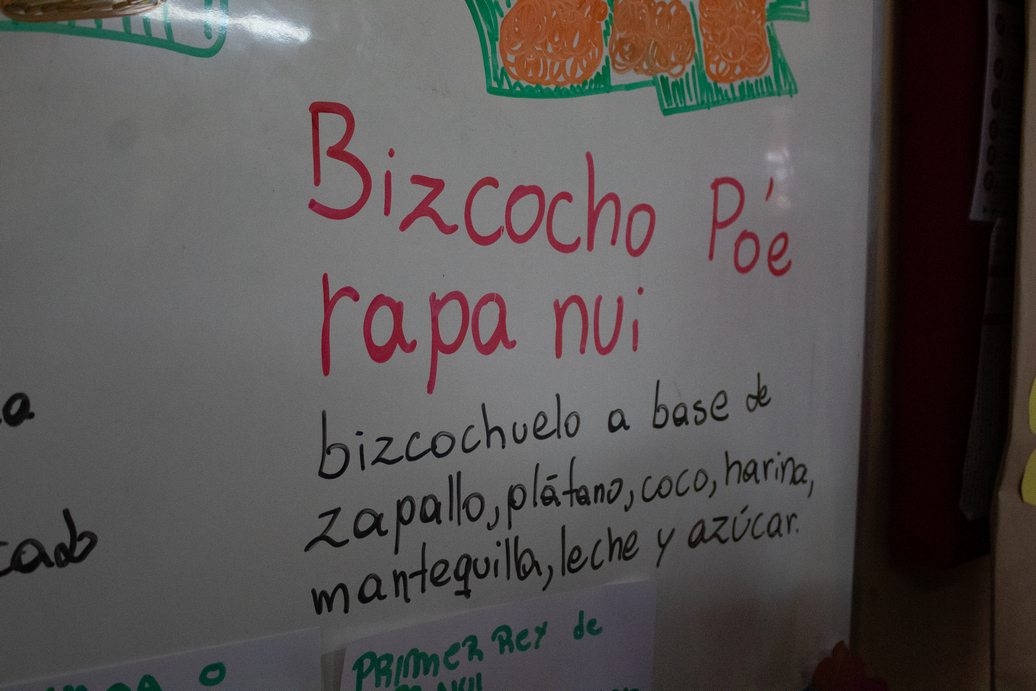 Bizcocho Po'e
rapa nui
bizcochuelo a base de
zapallo, plátano, coco, harina,
mantequilla, leche y azúcar.
PRIMER REY de